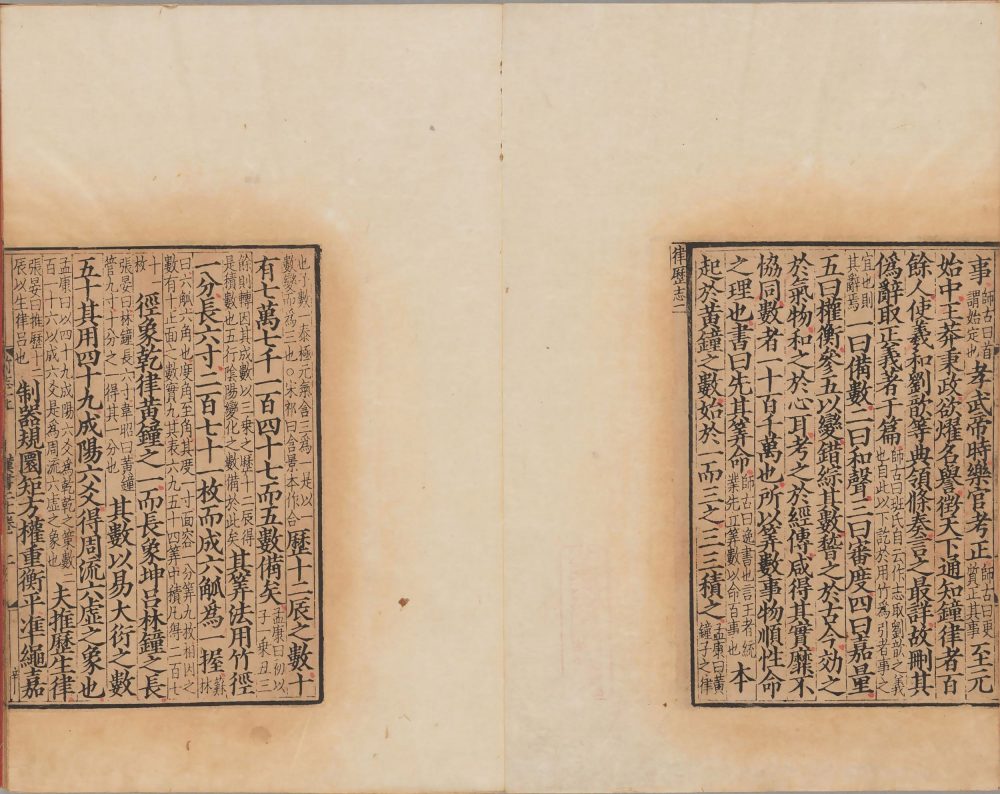 事師古曰首謂始定也孝武帝時樂官考正師古曰更質正其事至元
始中王莽秉政欲燿名譽徵天下通知鐘律者百
餘人使羲和劉歆等典領條奏言之最詳故刪其
僞辭取正義著于篇師古曰班氏自云作志取劉歆之義也自此以下訖於用竹爲引者事之
宜也則其辭焉一曰備數二曰和聲三曰審度四曰嘉量
五曰權衡參五以變錯綜其數稽之於古今効之
於氣物和之於心耳考之於經傳咸得其實靡不
協同數者一十百千萬也所以筭數事物順性命
之理也書曰先其筭命師古曰逸書也言王者統業先立筭數以命百事也本
起於黃鐘之數始於一而三之三三積之孟康曰黃鐘子之律
律歷志一
也子數一泰極元氣含三爲一是以一數變而爲三也○宋祁曰含景本作合歷十二辰之數十
有七萬七千一百四十七而五數備矣孟康曰初以子一乘丑三
餘則轉因其成數以三乘之歷十二辰得是積數也五行陰陽變化之數備於此矣其筭法用竹徑
一分長六寸二百七十一枚而成六觚爲一握蘇林
曰六觚六角也度角至角其度一寸面容一分筭九枚相因之數有十正面之數實九其表六九五十四筭中積凡得二百七
十枚徑象乾律黃鐘之一而長象坤呂林鐘之長
張晏曰林鐘長六寸韋昭曰黃鐘管九寸十分之一得其一分也其數以易大衍之數
五十其用四十九成陽六爻得周流六虛之象也
孟康曰以四十九成陽六爻爲乾乾之策數二百一十六以成六爻是爲周流六虛之象也夫推歷生律
張晏曰推歷十二辰以生律呂也制器規圜矩方權重衡平準繩嘉